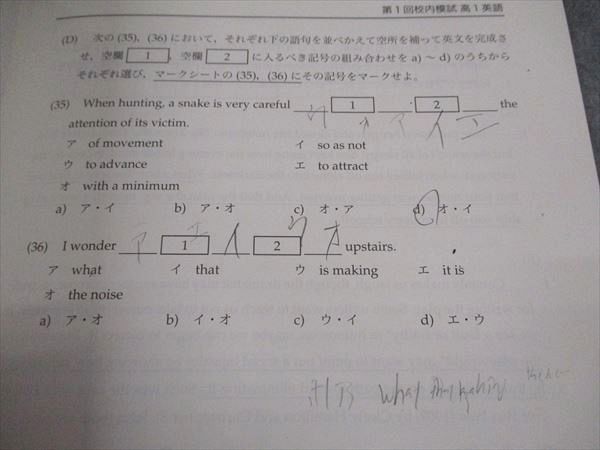 第1回校内模試 高1英語
(D) 次の (35), (36) において, それぞれ下の語句を並べかえて空所を補って英文を完成さ
せ, 空欄 1 , 空欄 2 に入るべき記号の組み合わせを a) ~ d) のうちから
それぞれ選び, マークシートの (35), (36) にその記号をマークせよ。
(35) When hunting, a snake is very careful ウ 1 オ ア 2 イ エ the
attention of its victim.
ア of movement イ so as not
ウ to advance エ to attract
オ with a minimum
a) ア・イ b) ア・オ c) オ・ア d) オ・イ
(36) I wonder ア 1 エ イ 2 ウ オ upstairs.
ア what イ that ウ is making エ it is
オ the noise
a) ア・オ b) イ・オ c) ウ・イ d) エ・ウ
it is what